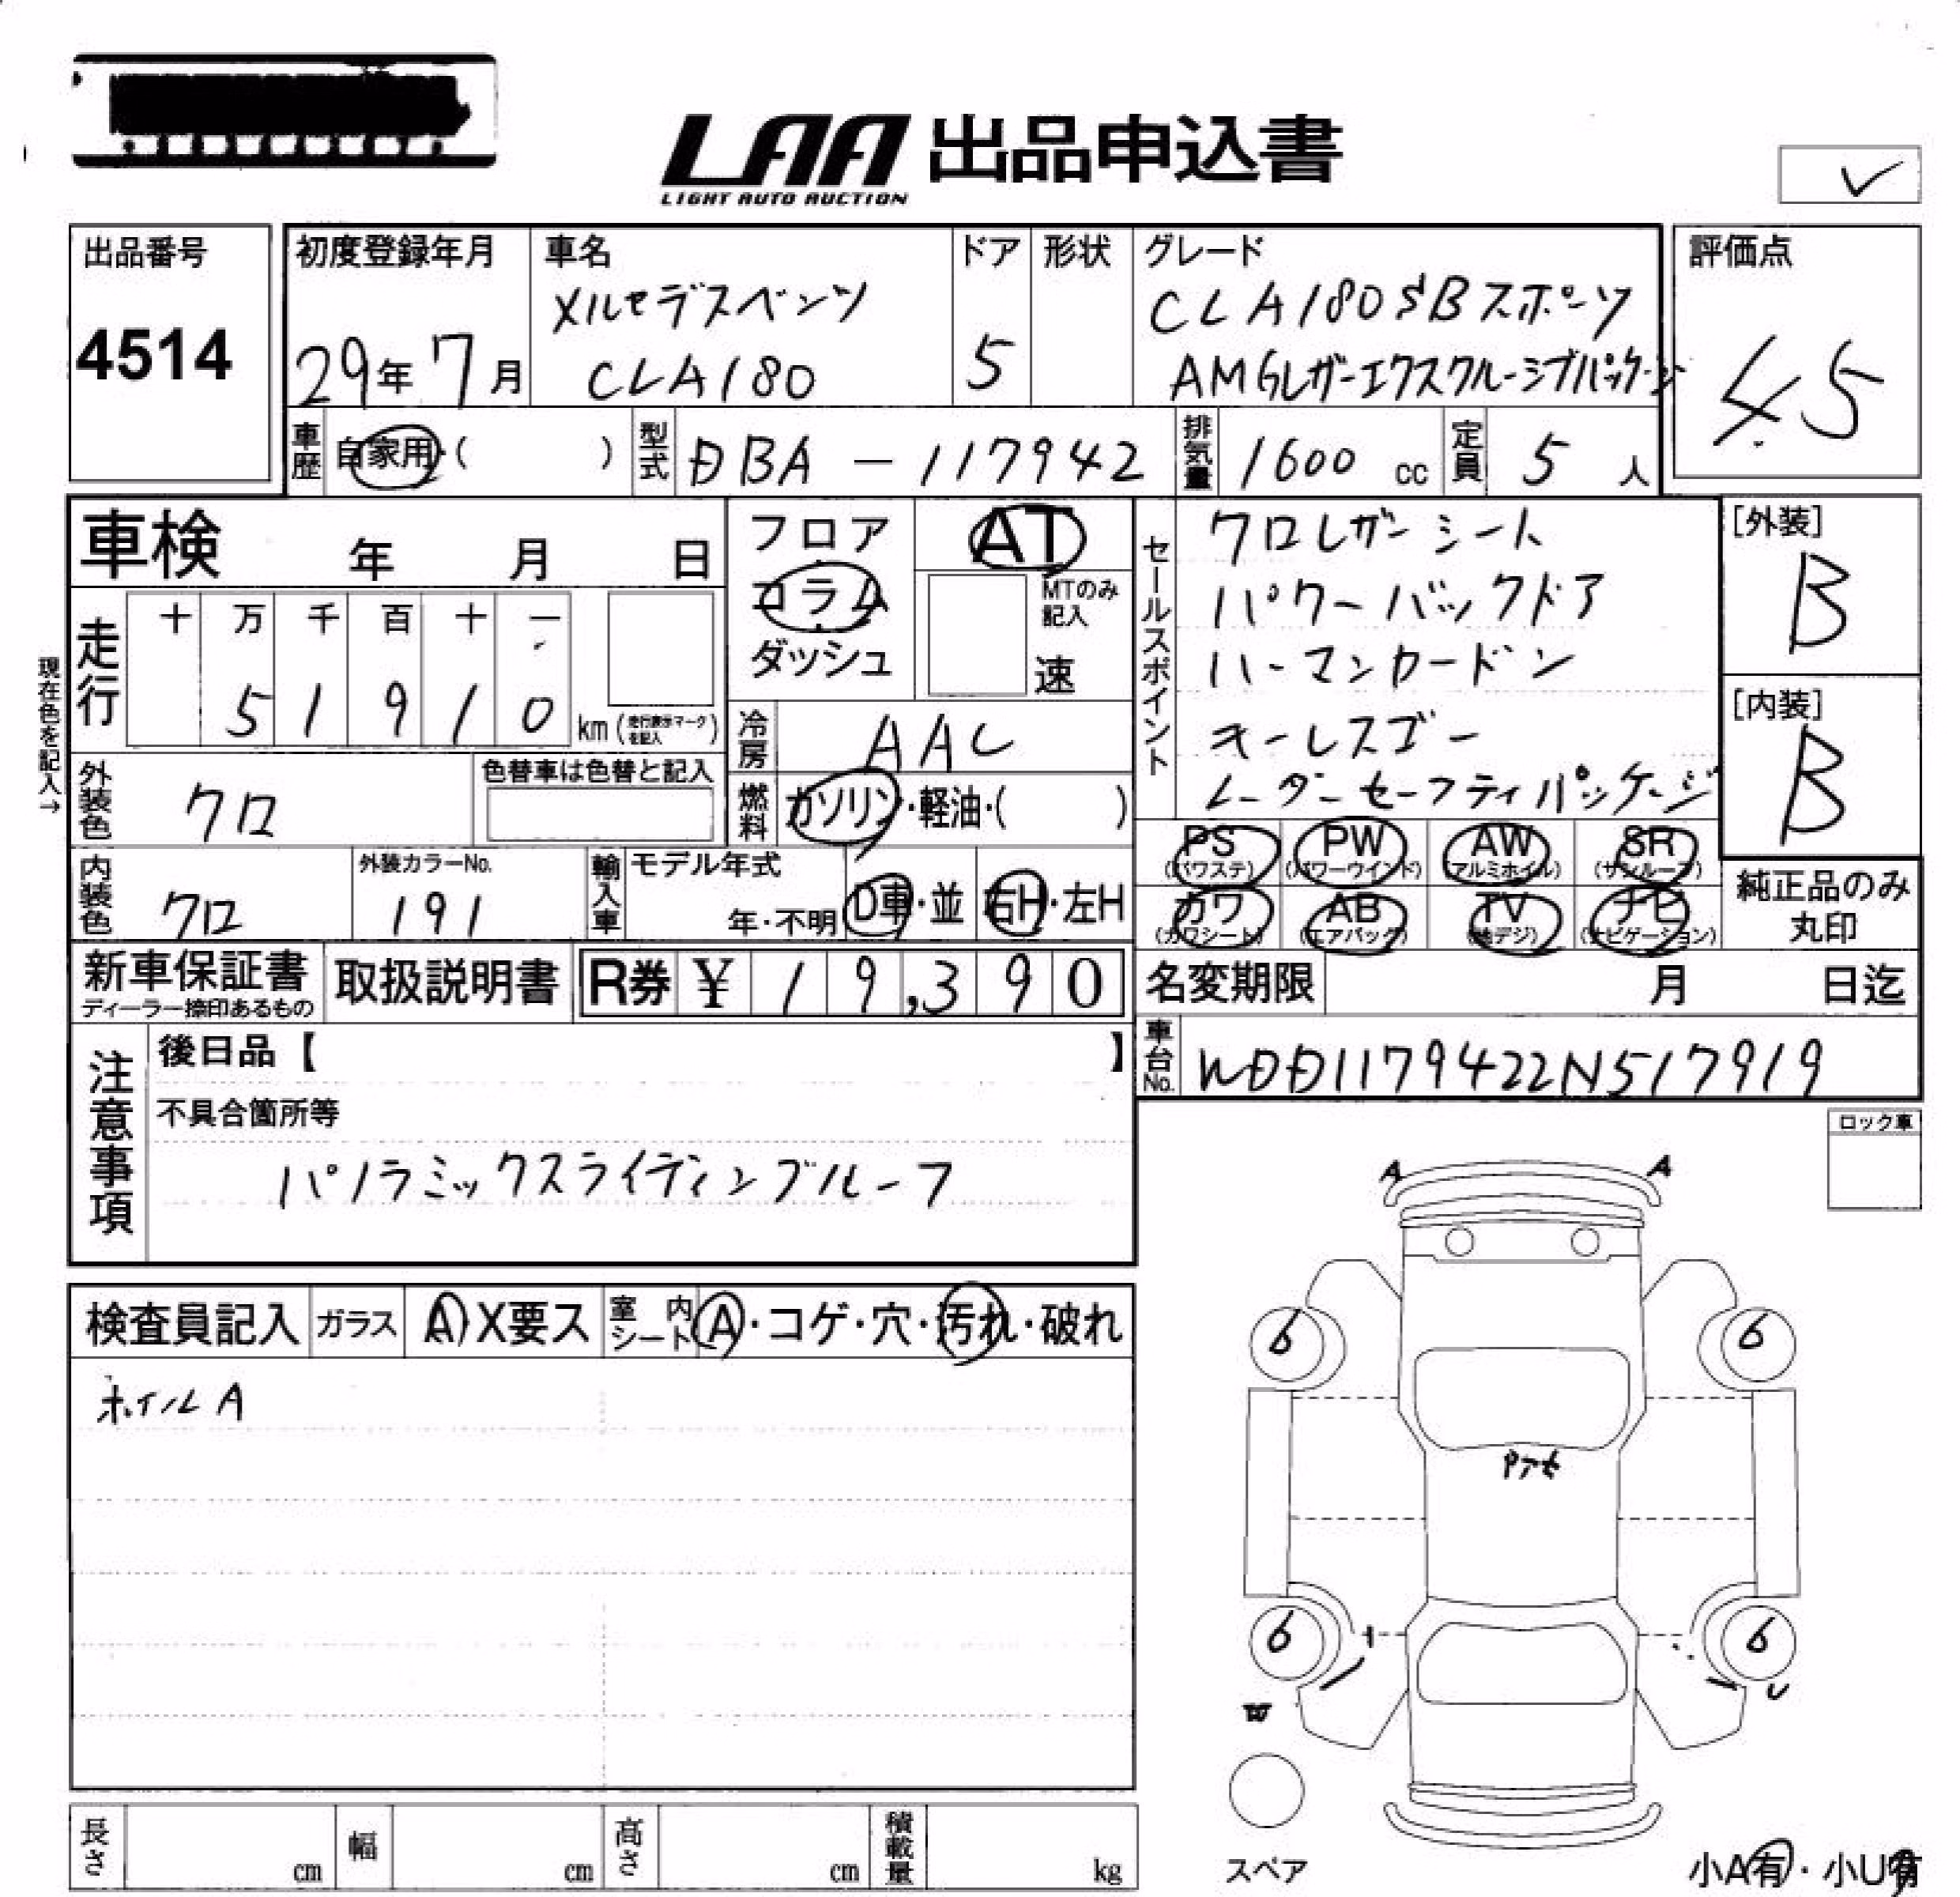 LAA 出品申込書
LIGHT AUTO AUCTION
出品番号
4514
初度登録年月
29年7月
車名
メルセデスベンツ
CLA180
ドア
5
形状
グレード
CLA180SBスポーツ
AMGレザーエクスクルーシブパッケージ
評価点
4.5
車歴
自家用・( )
型式
DBA-117942
排気量
1600 cc
定員
5 人
車検 年 月 日
フロア
コラム
ダッシュ
AT
MTのみ
記入
速
セールスポイント
クロレザーシート
パワーバックドア
ハーマンカードン
キーレスゴー
レーダーセーフティパッケージ
[外装]
B
[内装]
B
現在色を記入→
走行
十 万 千 百 十 一
5 1 9 1 0
km (走行表示マークを記入)
冷房
AAC
外装色
クロ
色替車は色替と記入
燃料
ガソリン・軽油・( )
PS (パワステ)
PW (パワーウインド)
AW (アルミホイル)
SR (サンルーフ)
カワ (カワシート)
AB (エアバッグ)
TV (地デジ)
ナビ (ナビゲーション)
純正品のみ
丸印
内装色
クロ
外装カラーNo.
191
輸入車
モデル年式
年・不明
D車・並
右H・左H
新車保証書
ディーラー捺印あるもの
取扱説明書
R券 ¥ 19,390
名変期限 月 日迄
車台No.
WDD1179422N517919
注意事項
後日品【 】
不具合箇所等
パノラミックスライディングルーフ
ロック車
A A
検査員記入 ガラス A X要ス 室内シート A・コゲ・穴・汚れ・破れ
ホイルA
6 6
Pアセ
6 6
W U
スペア
長さ cm 幅 cm 高さ cm 積載量 kg
小A有・小U有